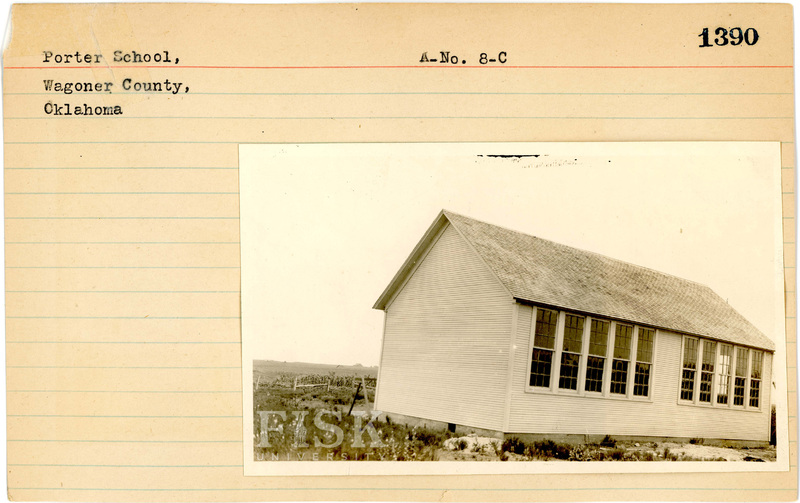 1390
Porter School,
A-No. 8-C
Wagoner County,
Oklahoma
FISK
UNIVERSITY